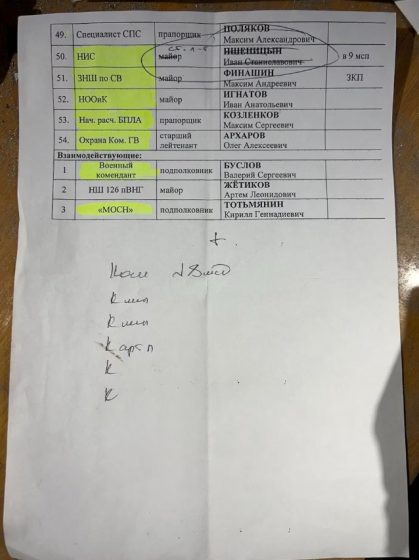 49. Специалист СПС прапорщик ПОЛЯКОВ
Максим Александрович
50. НИС майор ПШЕНИЦЫН в 9 мсп
Иван Станиславович
51. ЗНШ по СВ майор ФИНАШИН ЗКП
Максим Андреевич
52. майор ИГНАТОВ
Иван Анатольевич
53. Нач. расч. БПЛА прапорщик КОЗЛЕНКОВ
Максим Сергеевич
54. Охрана Ком. ГВ старший лейтенант АРХАРОВ
Олег Алексеевич
Взаимодействующие:
1 Военный комендант подполковник БУСЛОВ
Валерий Сергеевич
2 НШ 126 пВНГ майор ЖЁТИКОВ
Артем Леонидович
3 «МОСН» подполковник ТОТЬМЯНИН
Кирилл Геннадиевич
+
К
К